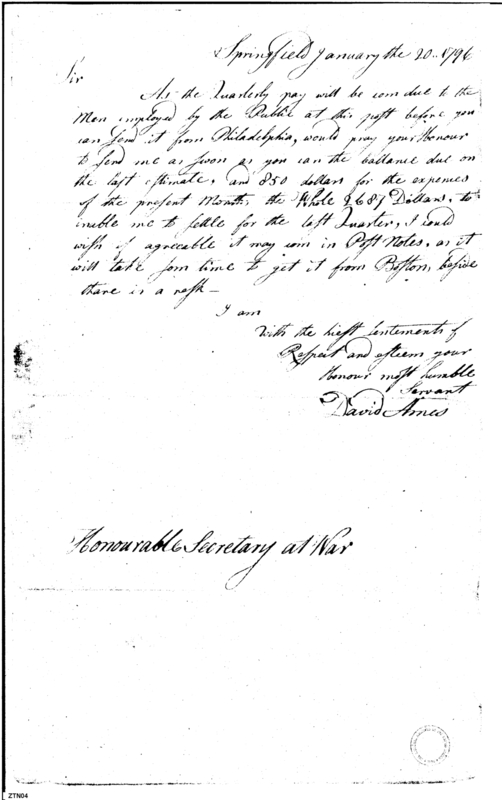 Springfield January the 20.. 1796
Sir
As the Quarterly pay will be com due to the
Men imployed by the Public at this post before you
can send it from Philadelphia, would pray your Honour
to send me as swon as you can the ballance due on
the last estimate, and 850 dollars for the expences
of the present Month, the Whole 2687 Dollars, to
inable me to settle for the last Quarter, I could
wish if agreeable it may com in Post Notes, as it
will take som time to get it from Boston, beside
thare is a resk —
I am
With the hiest sentements of
Respect and esteem your
Honour most humble
Servant
David Ames
Honourable Secretary at War
ZTN04